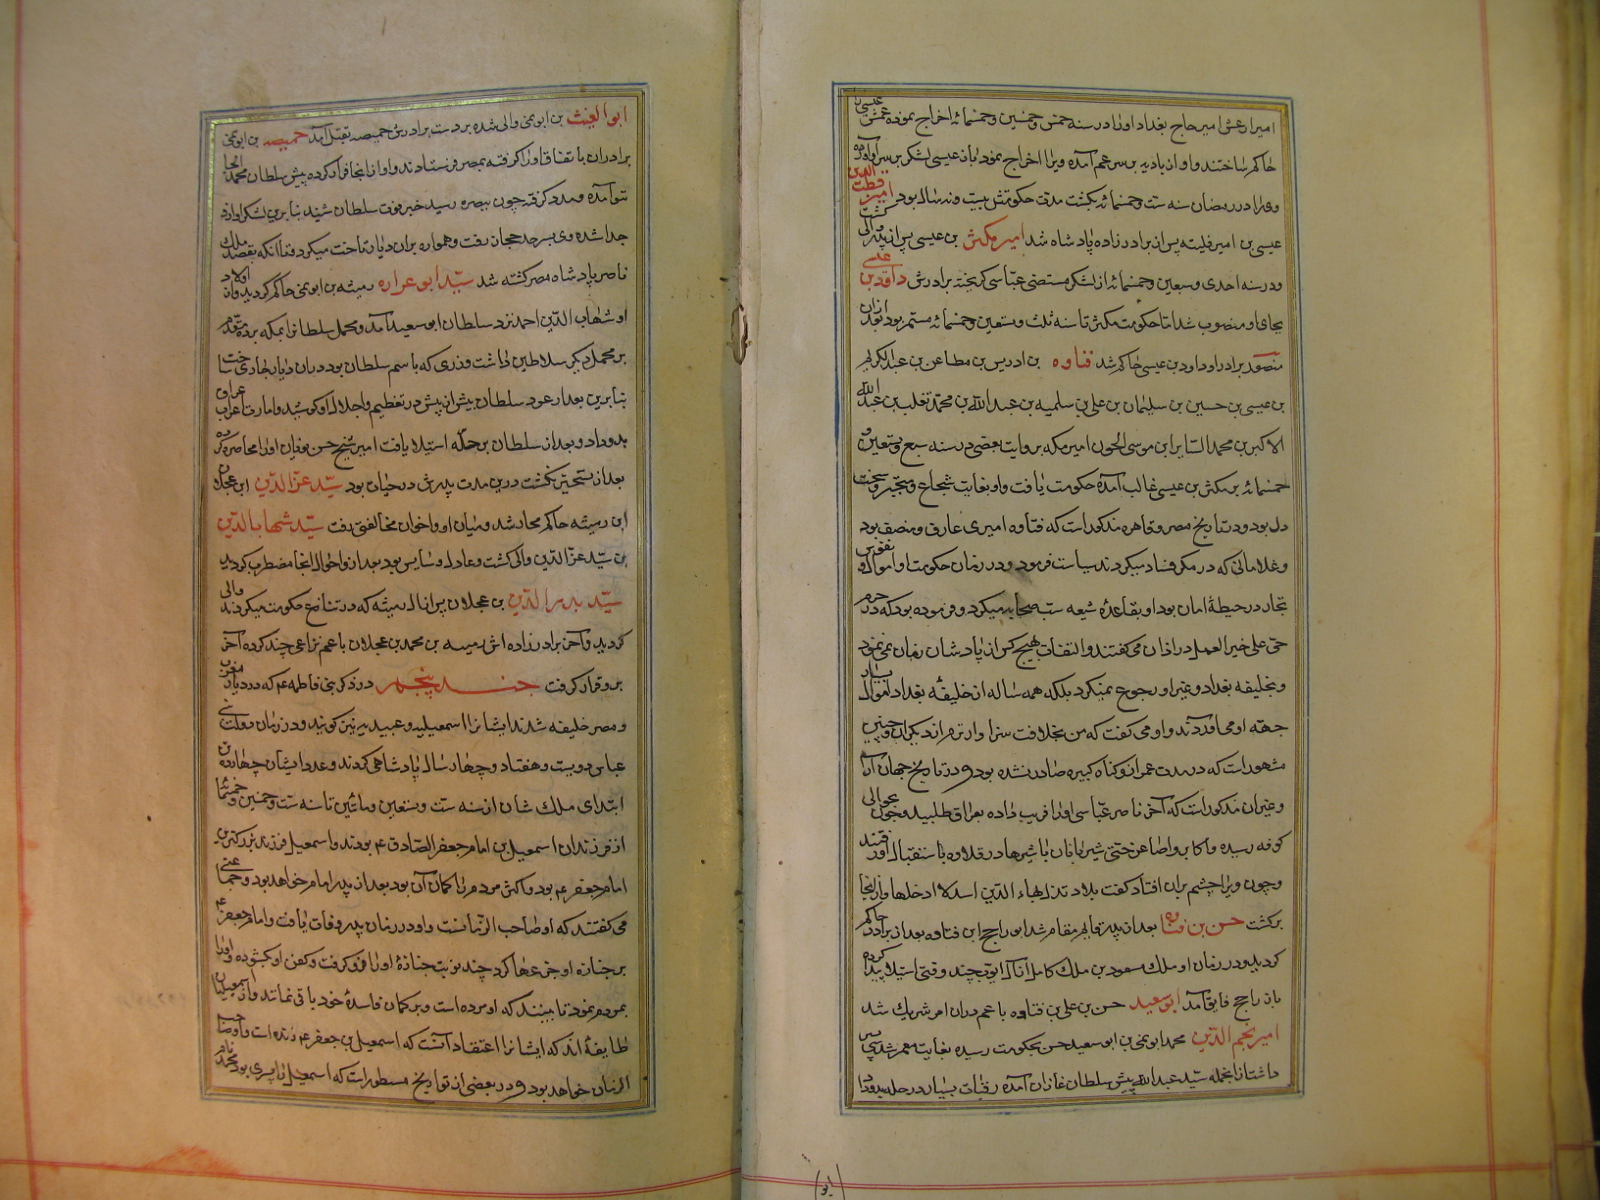 امیر ارغش امیر حاج بغداد او را در سنه خمس و خمسین و خمسمائه اخراج نموده عمش عیسی را
حاکم ساختند و او از بادیه بر سر عم آمده ویرا اخراج نمود باز عیسی لشکر بر سر او آورده
ویرا در رمضان سنه ست و خمسمائه بکشت مدت حکومتش بیست و نه سال بود امیر قطب الدین
عیسی بن امیر فلیته پس از برادرزاده پادشاه شد امیر مکثر بن عیسی پس از پدر والی گشت
و در سنه احدی و سبعین و خمسمائه از لشکر مستضی عباسی گریخته برادرش داود بن عیسی
بجای او منصوب شد اما حکومت مکثر تا سنه ثلث و تسعین و خمسمائه مستمر بود بعد از ان
منصور برادر او داود بن عیسی حاکم شد قتاوه بن ادریس بن مطاعن بن عبد الکریم
بن عیسی بن حسین بن سلیمان بن علی بن سلمیه بن عبد الله بن محمد تغلب بن عبد الله
الاکبر بن محمد الثایر ابن موسی الجون امیر مکه بروایت بعضی در سنه سبع و تسعین و
خمسمائه بر مکثر بن عیسی غالب آمده حکومت یافت و او بغایت شجاع و متجبر و سخت
دل بود و در تاریخ مصر و قاهره مذکور است که قتاوه امیری عارف و منصف بود
و غلامانی که در مکه فساد میکردند سیاست فرمود و در زمان حکومت او اموال و نفوس
تجار در حیطهٔ امان بود و بقاعدهٔ شیعه سب صحابه میکرد و فرموده بود که در حرم
حی علی خیر العمل در اذان می گفتند و التفات بهیچ کس از پادشاهان زمان نمی نمود
و بخلیفه بغداد و غیر او رجوع نمیکرد بلکه همه ساله از خلیفهٔ بغداد اموال بسیار
جهته او می آوردند و او می گفت که من بخلافت سزاوارترم از دیگران و چنین
مشهور است که در مدت عمر از و گناه کبیره صادر نشده بود و در تاریخ جهان آرا
و غیر آن مذکور است که آخر ناصر عباسی او را فریب داده بعراق طلبید و چون بحوالی
کوفه رسیده و اکابر و اصاغر حتی شیربانان با شیرها در قلاوه باستقبال او رفتند
و چون ویرا چشم بران افتاد گفت بلاد تذل بها الدین اسد لا ادخلها و از انجا
برگشت حسن بن قتاوه بعد از پدر قایم مقام شد ابو راجح ابن قتاوه بعد از برادر حاکم
گردید و در زمان او ملک مسعود بن ملک کامل اتاک ایوبی چند وقتی استیلا پیدا کرده
باز راجح فایق آمد ابو سعید حسن بن علی بن قتاوه با عم دران امر شریک شد
امیر نجم الدین محمد ابو نمی بن ابو سعید حسن بحکومت رسیده بغایت معمر شد سی پسر
داشت از انجمله سید عبد الله پیش سلطان غازان آمده رقبات بسیار در حله بدو داد
ابو الغیث بن ابو نمی والی شده بر دست برادرش حمیصه بقتل آمد حمیصه بن ابو نمی
برادران باتفاق او را گرفته بمصر فرستادند و او از انجا فرار کرده پیش سلطان محمد الجا
یتو آمده و مدد گرفته چون ببصره رسید خبر فوت سلطان شنید بنابرین لشکر او ازو
جدا شده وی بسرحد حجاز رفت و همواره بران دیار تاخت میکرد تا آنکه بقصد ملک
ناصر پادشاه مصر کشته شد سید ابو عراره رمیثه بن ابو نمی حاکم گردید و از اولاد
او شهاب الدین احمد نزد سلطان ابو سعید آمد و محمل سلطان را بمکه برده مقدم
بر محمل دیگر سلاطین داشت و زری که باسم سلطان بود دران دیار جاری ساخت
بنابرین بعد از عود سلطان بیش از پیش در تعظیم و اجلال او کوشید و امارت اعراب عراق
بدو داد و بعد از سلطان بر حله استیلا یافت امیر شیخ حسن نویان او را محاصره کرد
بعد از تسخیر بکشت درین مدت پدرش در حیات بود سید عز الدین ابن عجلان
ابن رمیثه حاکم بحار شد و میان او و اخوان مخالفتی رفت سید شهاب الدین
بن سید عز الدین والی گشت و عادل و سایس بود بعد از و احوال انجا مضطرب گردید
سید بدر الدین بن عجلان پس از ال رمیثه که در تنازع حکومت میکردند والی
گردید و آخر برادرزاده اش رمیسه بن محمد بن عجلان با عم نزاعی چند کرده آخر
برو قرار گرفت جند پنجم در ذکر بنی فاطمه عم که در دیار مغرب
و مصر خلیفه شدند ایشانرا اسمعیلیه و عبیدیه نیز گویند و در زمان دولت بنی
عباس دویست و هفتاد و چهار سال پادشاهی کردند و عدد ایشان چهارده تن
ابتدای ملک شان از سنه ست و تسعین و مأتین تا سنه ست و خمسین و خمسمائه
از فرزندان اسمعیل بن امام جعفر الصادق عم بودند و اسمعیل فرزند بزرگترین
امام جعفر عم بود و اکثر مردم را گمان آن بود بعد از پدر امام خواهد بود و جماعتی
می گفتند که او صاحب الزمانست و او در زمان پدر وفات یافت و امام جعفر عم
بر جنازه او جزعها کرد چند نوبت جنازهٔ او را فرو گرفت و کفن او گشوده و او را
بمردم نمود تا ببینند که او مرده است و بر گمان فاسدهٔ خود باقی نمانند و از اسمعیلیان
طایفهٔ اند که ایشانرا اعتقاد آنست که اسمعیل بن جعفر عم زنده است و او صاحب
الزمان خواهد بود و در بعضی از تواریخ مسطور است که اسمعیل را پسری بود محمد نام